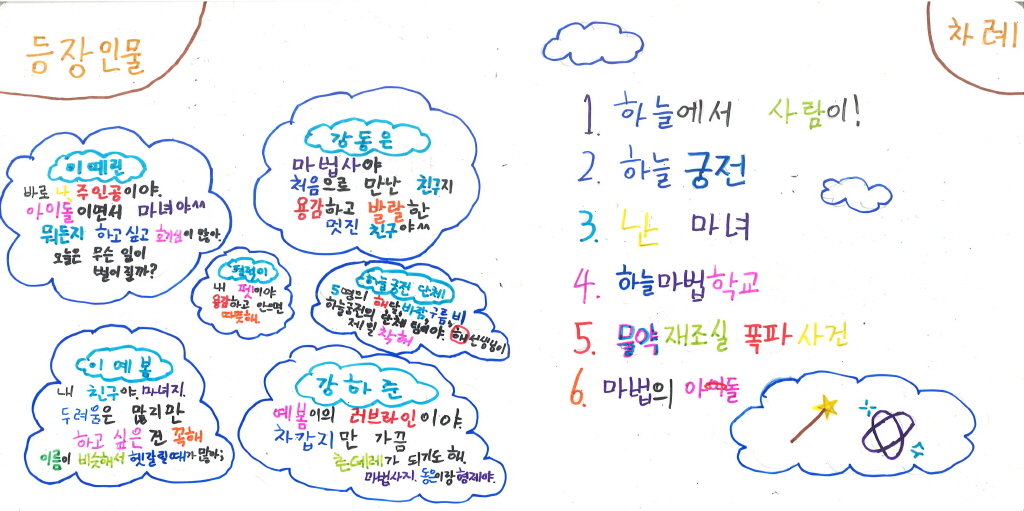 등장인물
이예린
바로 나, 주인공이야.
아이돌이면서 마녀야^^
뭐든지 하고 싶고 호기심이 많아.
오늘은 무슨 일이
벌어질까?
강동은
마법사야
처음으로 만난 친구지
용감하고 발랄한
멋진 친구야^^
내 펫이야
용감하고 안으면
따뜻해.
하늘궁전 단체!
5명의 해, 달, 바람, 구름, 비
하늘궁전의 단체 팀이야.
제일 착해 해 선생님이
이예봄
내 친구야. 마녀지.
두려움은 많지만
하고 싶은 건 꼭해
이름이 비슷해서 헷갈릴때가 많아;
강하준
예봄이의 러브라인이야.
차갑지만 가끔
츤데레가 되기도 해.
마법사지. 동은이랑 형제야.
차례
1. 하늘에서 사람이!
2. 하늘 궁전
3. 난 마녀
4. 하늘마법학교
5. 물약 재조실 폭파 사건
6. 마법의 아이돌